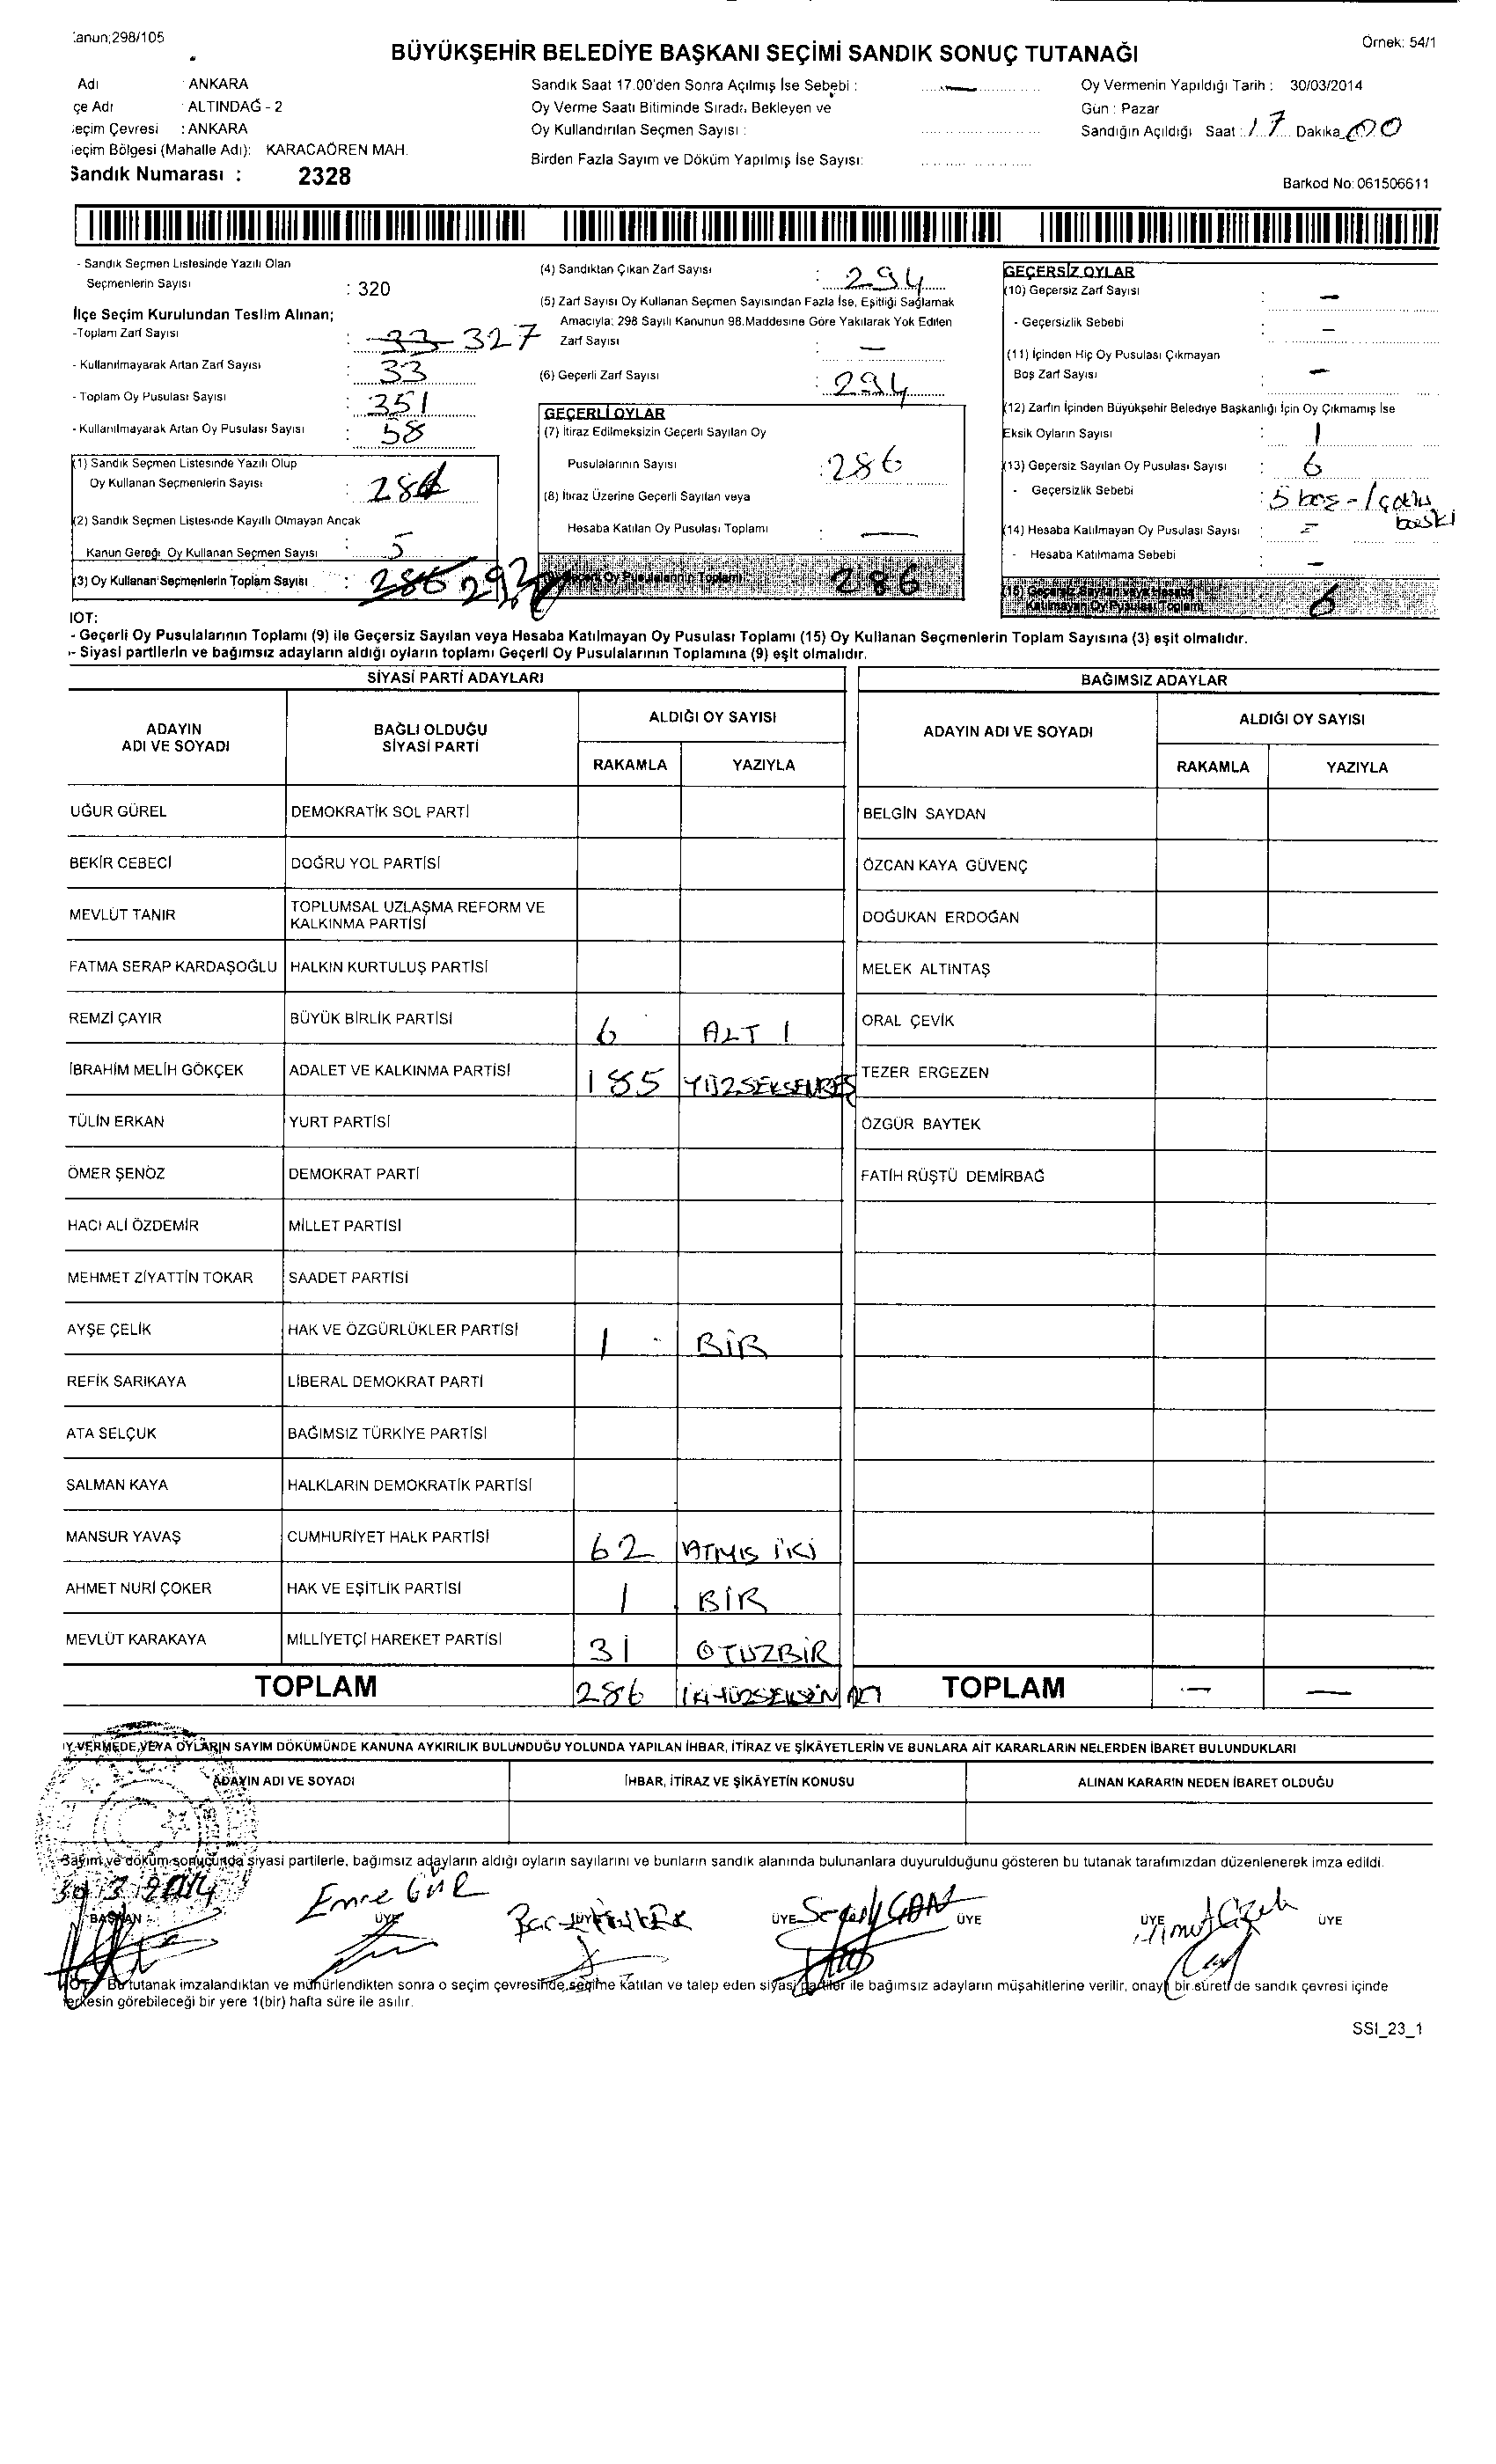 :anun;298/105
Örnek: 54/1
BÜYÜKŞEHİR BELEDİYE BAŞKANI SEÇİMİ SANDIK SONUÇ TUTANAĞI
Adı : ANKARA
çe Adı : ALTINDAĞ - 2
eçim Çevresi : ANKARA
eçim Bölgesi (Mahalle Adı): KARACAÖREN MAH.
Sandık Numarası : 2328
Sandık Saat 17.00'den Sonra Açılmış İse Sebebi :
Oy Verme Saati Bitiminde Sırada Bekleyen ve
Oy Kullandırılan Seçmen Sayısı :
Birden Fazla Sayım ve Döküm Yapılmış İse Sayısı:
Oy Vermenin Yapıldığı Tarih : 30/03/2014
Gün : Pazar
Sandığın Açıldığı Saat : 17 Dakika 00
Barkod No: 061506611
- Sandık Seçmen Listesinde Yazılı Olan
Seçmenlerin Sayısı : 320
İlçe Seçim Kurulundan Teslim Alınan;
-Toplam Zarf Sayısı : 33 327
- Kullanılmayarak Artan Zarf Sayısı : 33
- Toplam Oy Pusulası Sayısı : 351
- Kullanılmayarak Artan Oy Pusulası Sayısı : 58
(1) Sandık Seçmen Listesinde Yazılı Olup
Oy Kullanan Seçmenlerin Sayısı :
(2) Sandık Seçmen Listesinde Kayıtlı Olmayan Ancak
Kanun Gereği Oy Kullanan Seçmen Sayısı : 5
(3) Oy Kullanan Seçmenlerin Toplam Sayısı : 286
(4) Sandıktan Çıkan Zarf Sayısı : 294
(5) Zarf Sayısı Oy Kullanan Seçmen Sayısından Fazla İse, Eşitliği Sağlamak
Amacıyla; 298 Sayılı Kanunun 98.Maddesine Göre Yakılarak Yok Edilen
Zarf Sayısı : —
(6) Geçerli Zarf Sayısı : 294
GEÇERLİ OYLAR
(7) İtiraz Edilmeksizin Geçerli Sayılan Oy
Pusulalarının Sayısı : 286
(8) İtiraz Üzerine Geçerli Sayılan veya
Hesaba Katılan Oy Pusulası Toplamı : —
Geçerli Oy Pusulalarının Toplamı 286
GEÇERSİZ OYLAR
(10) Geçersiz Zarf Sayısı : —
- Geçersizlik Sebebi : —
(11) İçinden Hiç Oy Pusulası Çıkmayan
Boş Zarf Sayısı : —
(12) Zarfın İçinden Büyükşehir Belediye Başkanlığı İçin Oy Çıkmamış İse
Eksik Oyların Sayısı : 1
(13) Geçersiz Sayılan Oy Pusulası Sayısı : 6
- Geçersizlik Sebebi : 5 boş - 1 çoklu
baskı
(14) Hesaba Katılmayan Oy Pusulası Sayısı : —
- Hesaba Katılmama Sebebi : —
(15) Geçersiz Sayılan veya Hesaba
Katılmayan Oy Pusulası Toplamı : 6
IOT:
- Geçerli Oy Pusulalarının Toplamı (9) ile Geçersiz Sayılan veya Hesaba Katılmayan Oy Pusulası Toplamı (15) Oy Kullanan Seçmenlerin Toplam Sayısına (3) eşit olmalıdır.
- Siyasi partilerin ve bağımsız adayların aldığı oyların toplamı Geçerli Oy Pusulalarının Toplamına (9) eşit olmalıdır.
SİYASİ PARTİ ADAYLARI
BAĞIMSIZ ADAYLAR
ADAYIN ADI VE SOYADI
BAĞLI OLDUĞU SİYASİ PARTİ
ALDIĞI OY SAYISI
RAKAMLA YAZIYLA
ADAYIN ADI VE SOYADI
ALDIĞI OY SAYISI
RAKAMLA YAZIYLA
UĞUR GÜREL DEMOKRATİK SOL PARTİ BELGİN SAYDAN
BEKİR CEBECİ DOĞRU YOL PARTİSİ ÖZCAN KAYA GÜVENÇ
MEVLÜT TANIR TOPLUMSAL UZLAŞMA REFORM VE KALKINMA PARTİSİ DOĞUKAN ERDOĞAN
FATMA SERAP KARDAŞOĞLU HALKIN KURTULUŞ PARTİSİ MELEK ALTINTAŞ
REMZİ ÇAYIR BÜYÜK BİRLİK PARTİSİ 6 ALTI ORAL ÇEVİK
İBRAHİM MELİH GÖKÇEK ADALET VE KALKINMA PARTİSİ 185 YÜZSEKSENBEŞ TEZER ERGEZEN
TÜLİN ERKAN YURT PARTİSİ ÖZGÜR BAYTEK
ÖMER ŞENÖZ DEMOKRAT PARTİ FATİH RÜŞTÜ DEMİRBAĞ
HACI ALİ ÖZDEMİR MİLLET PARTİSİ
MEHMET ZİYATTİN TOKAR SAADET PARTİSİ
AYŞE ÇELİK HAK VE ÖZGÜRLÜKLER PARTİSİ 1 BİR
REFİK SARIKAYA LİBERAL DEMOKRAT PARTİ
ATA SELÇUK BAĞIMSIZ TÜRKİYE PARTİSİ
SALMAN KAYA HALKLARIN DEMOKRATİK PARTİSİ
MANSUR YAVAŞ CUMHURİYET HALK PARTİSİ 62 ATMIS İKİ
AHMET NURİ ÇOKER HAK VE EŞİTLİK PARTİSİ 1 BİR
MEVLÜT KARAKAYA MİLLİYETÇİ HAREKET PARTİSİ 31 OTUZBİR
TOPLAM 286 İKİYÜZSEKSEN ALTI TOPLAM — —
Y VERMEDE VEYA OYLARIN SAYIM DÖKÜMÜNDE KANUNA AYKIRILIK BULUNDUĞU YOLUNDA YAPILAN İHBAR, İTİRAZ VE ŞİKÂYETLERİN VE BUNLARA AİT KARARLARIN NELERDEN İBARET BULUNDUKLARI
ADAYIN ADI VE SOYADI İHBAR, İTİRAZ VE ŞİKÂYETİN KONUSU ALINAN KARARIN NEDEN İBARET OLDUĞU
Sayım ve döküm sonucunda siyasi partilerle, bağımsız adayların aldığı oyların sayılarını ve bunların sandık alanında bulunanlara duyurulduğunu gösteren bu tutanak tarafımızdan düzenlenerek imza edildi.
30/3/2014
Emre GÜR
BAŞKAN ÜYE ÜYE ÜYE ÜYE ÜYE
NOT: Bu tutanak imzalandıktan ve mühürlendikten sonra o seçim çevresinde,seçime katılan ve talep eden siyasi partiler ile bağımsız adayların müşahitlerine verilir, onaylı bir sureti de sandık çevresi içinde
erkesin görebileceği bir yere 1(bir) hafta süre ile asılır.
SSI_23_1